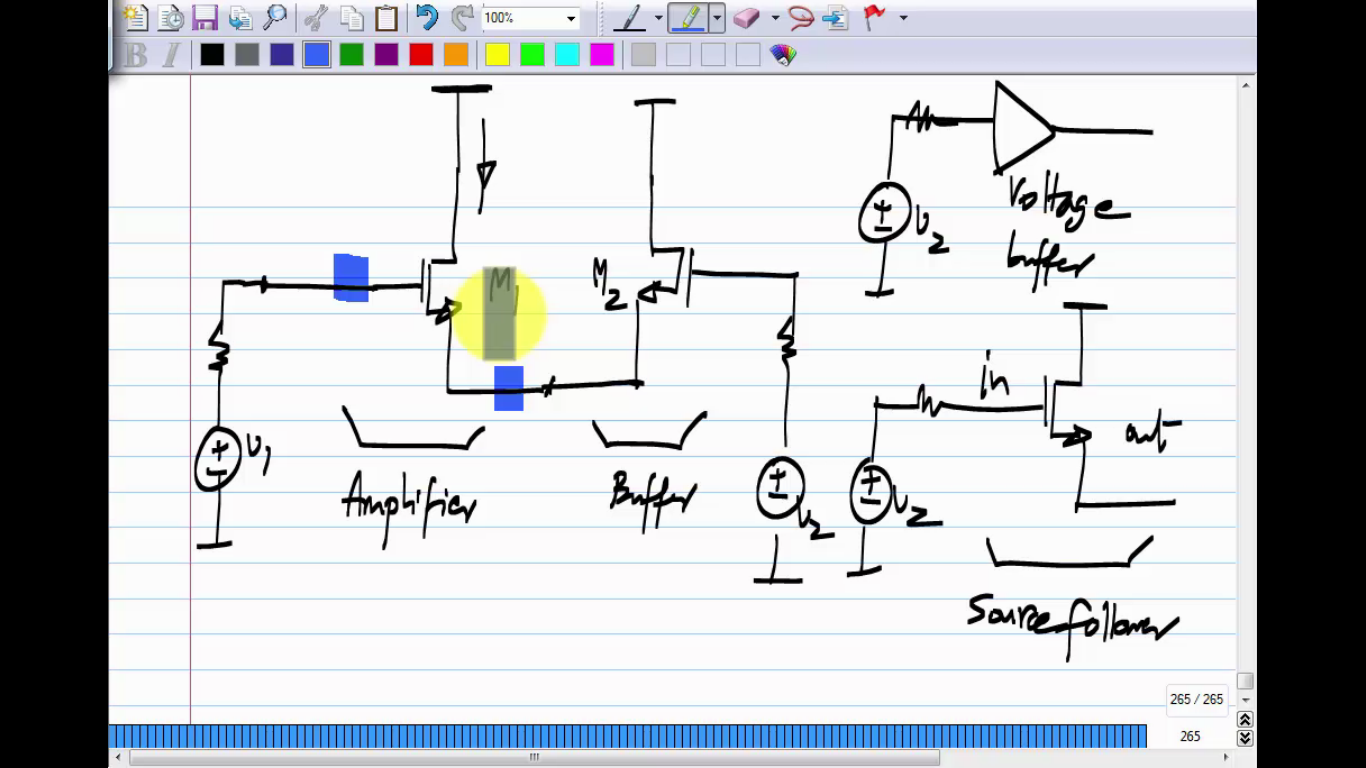 100%
B I
M1
M2
V1
V2
Amplifier
Buffer
V2
Voltage
buffer
V2
in
out
Source follower
265 / 265
265